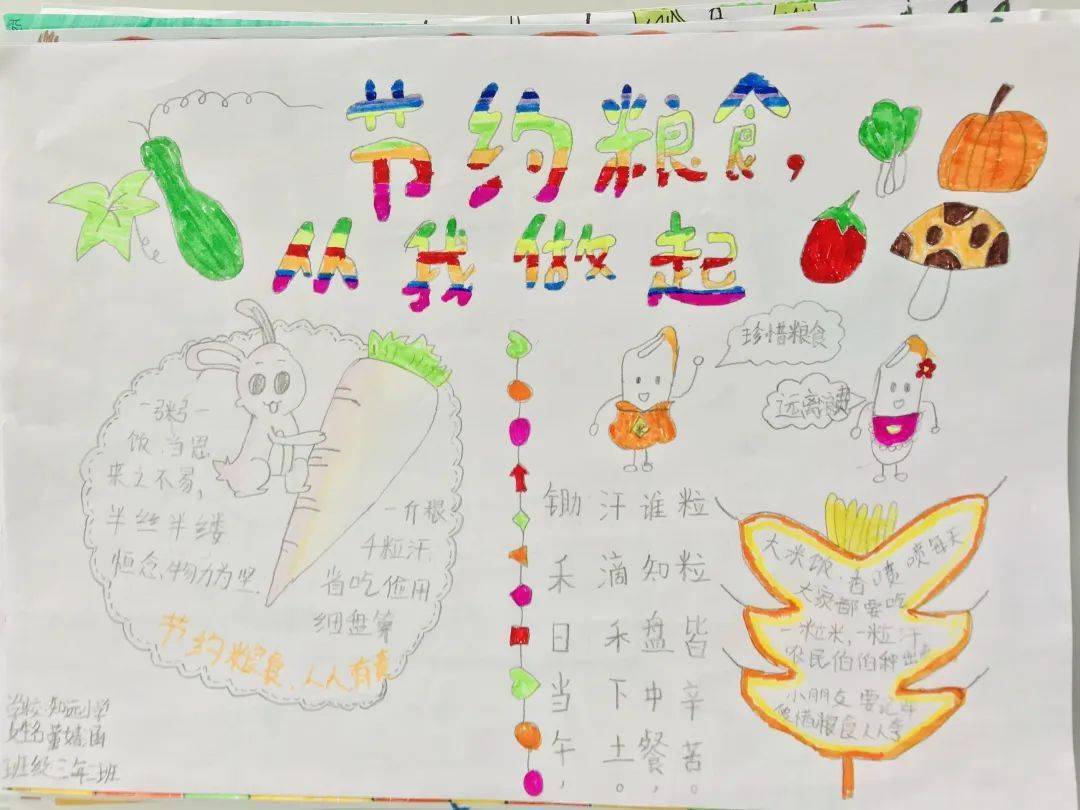 节约粮食,
从我做起
一粥一
饭,当思
来之不易,
半丝半缕
恒念、物力为坚.
一斤粮
千粒汗
省吃俭用
细盘算
节约粮食,人人有责
珍惜粮食
远离
锄禾日当午,
汗滴禾下土。
谁知盘中餐
粒粒皆辛苦。
大米饭,香喷喷每天
大家都要吃
一粒米,一粒汗
农民伯伯种出
小朋友要记牢
粮食人人
学校:知远小学
姓名
班级三年二班